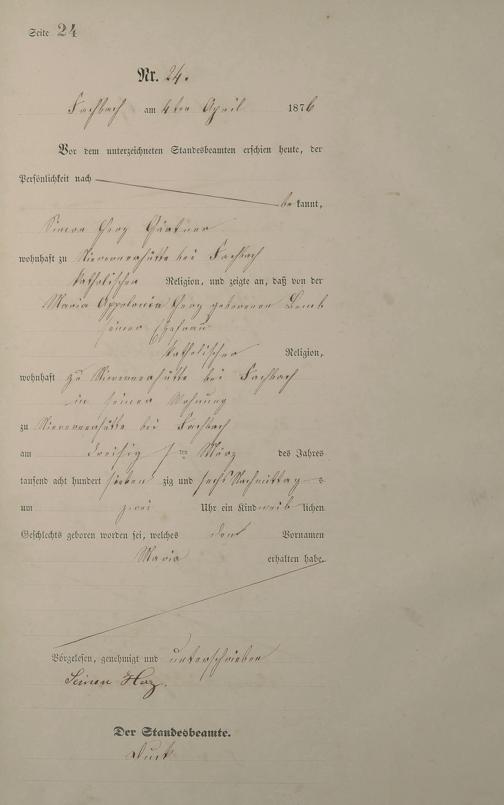 Seite 24
Nr. 24.
Fachbach am 4ten April 1876
Vor dem unterzeichneten Standesbeamten erschien heute, der
Persönlichkeit nach
bekannt,
Simon
wohnhaft zu Nieverner Hütte bei Fachbach
katholischer Religion, und zeigte an, daß von der
Maria Appolonia geborenen
seiner Ehefrau
katholischer Religion,
wohnhaft zu Nieverner Hütte bei Fachbach
in seiner Wohnung
zu Nieverner Hütte bei Fachbach
am dreisigsten März des Jahres
tausend acht hundert sieben zig und sechs Nachmittags
um zwei Uhr ein Kind weiblichen
Geschlechts geboren worden sei, welches den Vornamen
Maria erhalten habe.
Vorgelesen, genehmigt und unterschrieben
Simon
Der Standesbeamte.